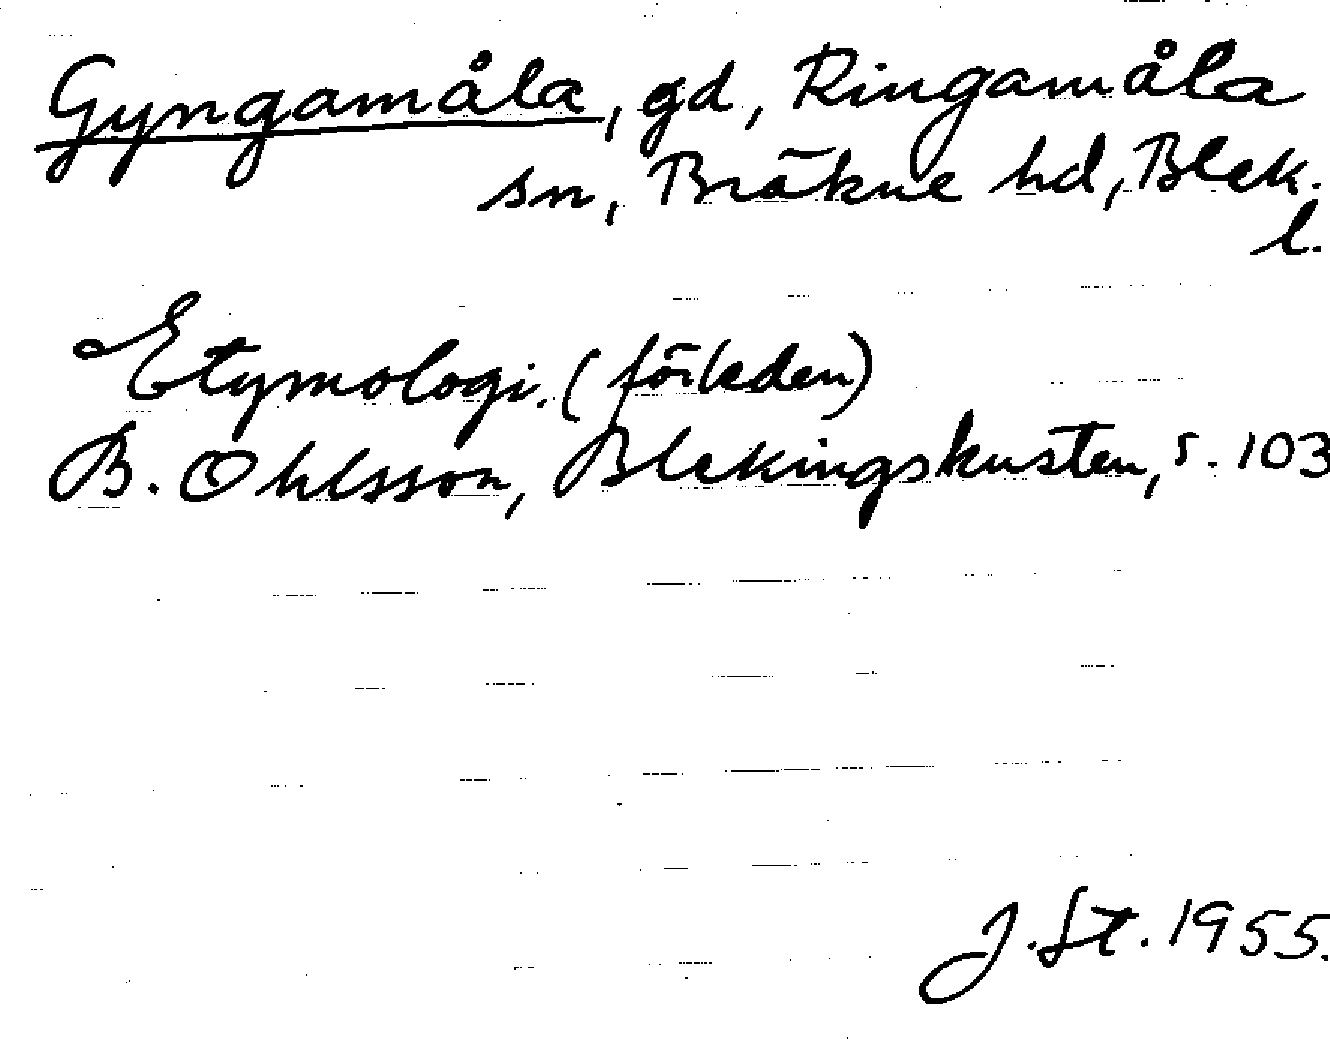 Gyngamåla, gd, Ringamåla
sn, Bräkne hd, Blek.
l.
Etymologi. (förleden)
B. Ohlsson, Blekingskusten, s. 103
J. St. 1955.